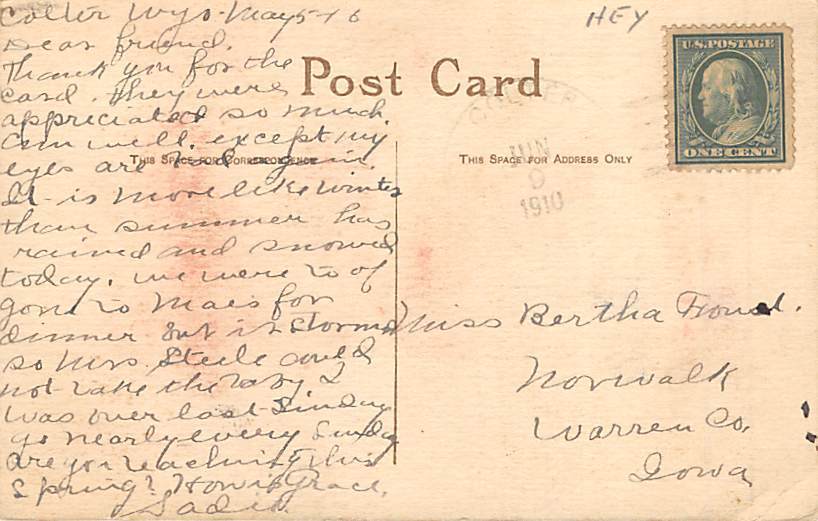 Colter Wyo. May 5-16
Dear friend.
Thank you for the
card. they were
appreciated so much.
am well. except my
eyes are bad again.
It is more like winter
than summer has
rained and snowed
today. we were to of
gone to Maes for
dinner but it stormed
so Mrs. Steele could
not take the baby I
was over last Sunday
go nearly every Sunday
are you teaching this
Spring? How is Grace.
Sadie.
HEY
Post Card
THIS SPACE FOR CORRESPONDENCE
THIS SPACE FOR ADDRESS ONLY
U.S. POSTAGE
ONE CENT
COLTER
JUN
9
1910
Miss Bertha
Norwalk
Warren Co.
Iowa